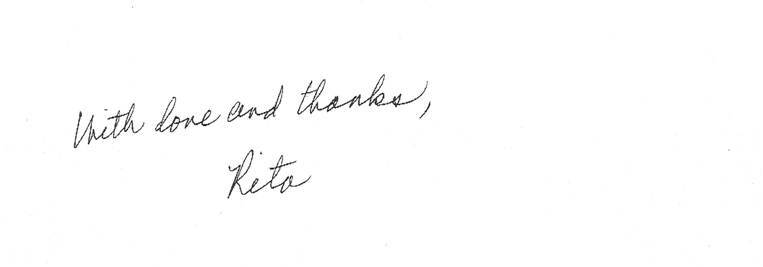 With love and thanks,
Rita